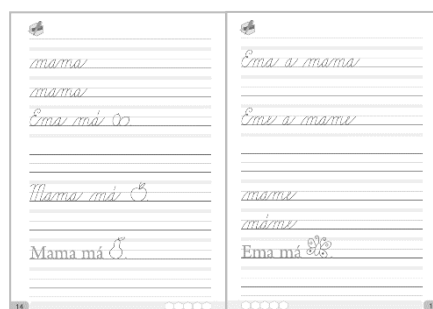 mama
mama
Ema má
Mama má
Mama má
14
Ema a mama
Eme a mame
mame
máme
Ema má